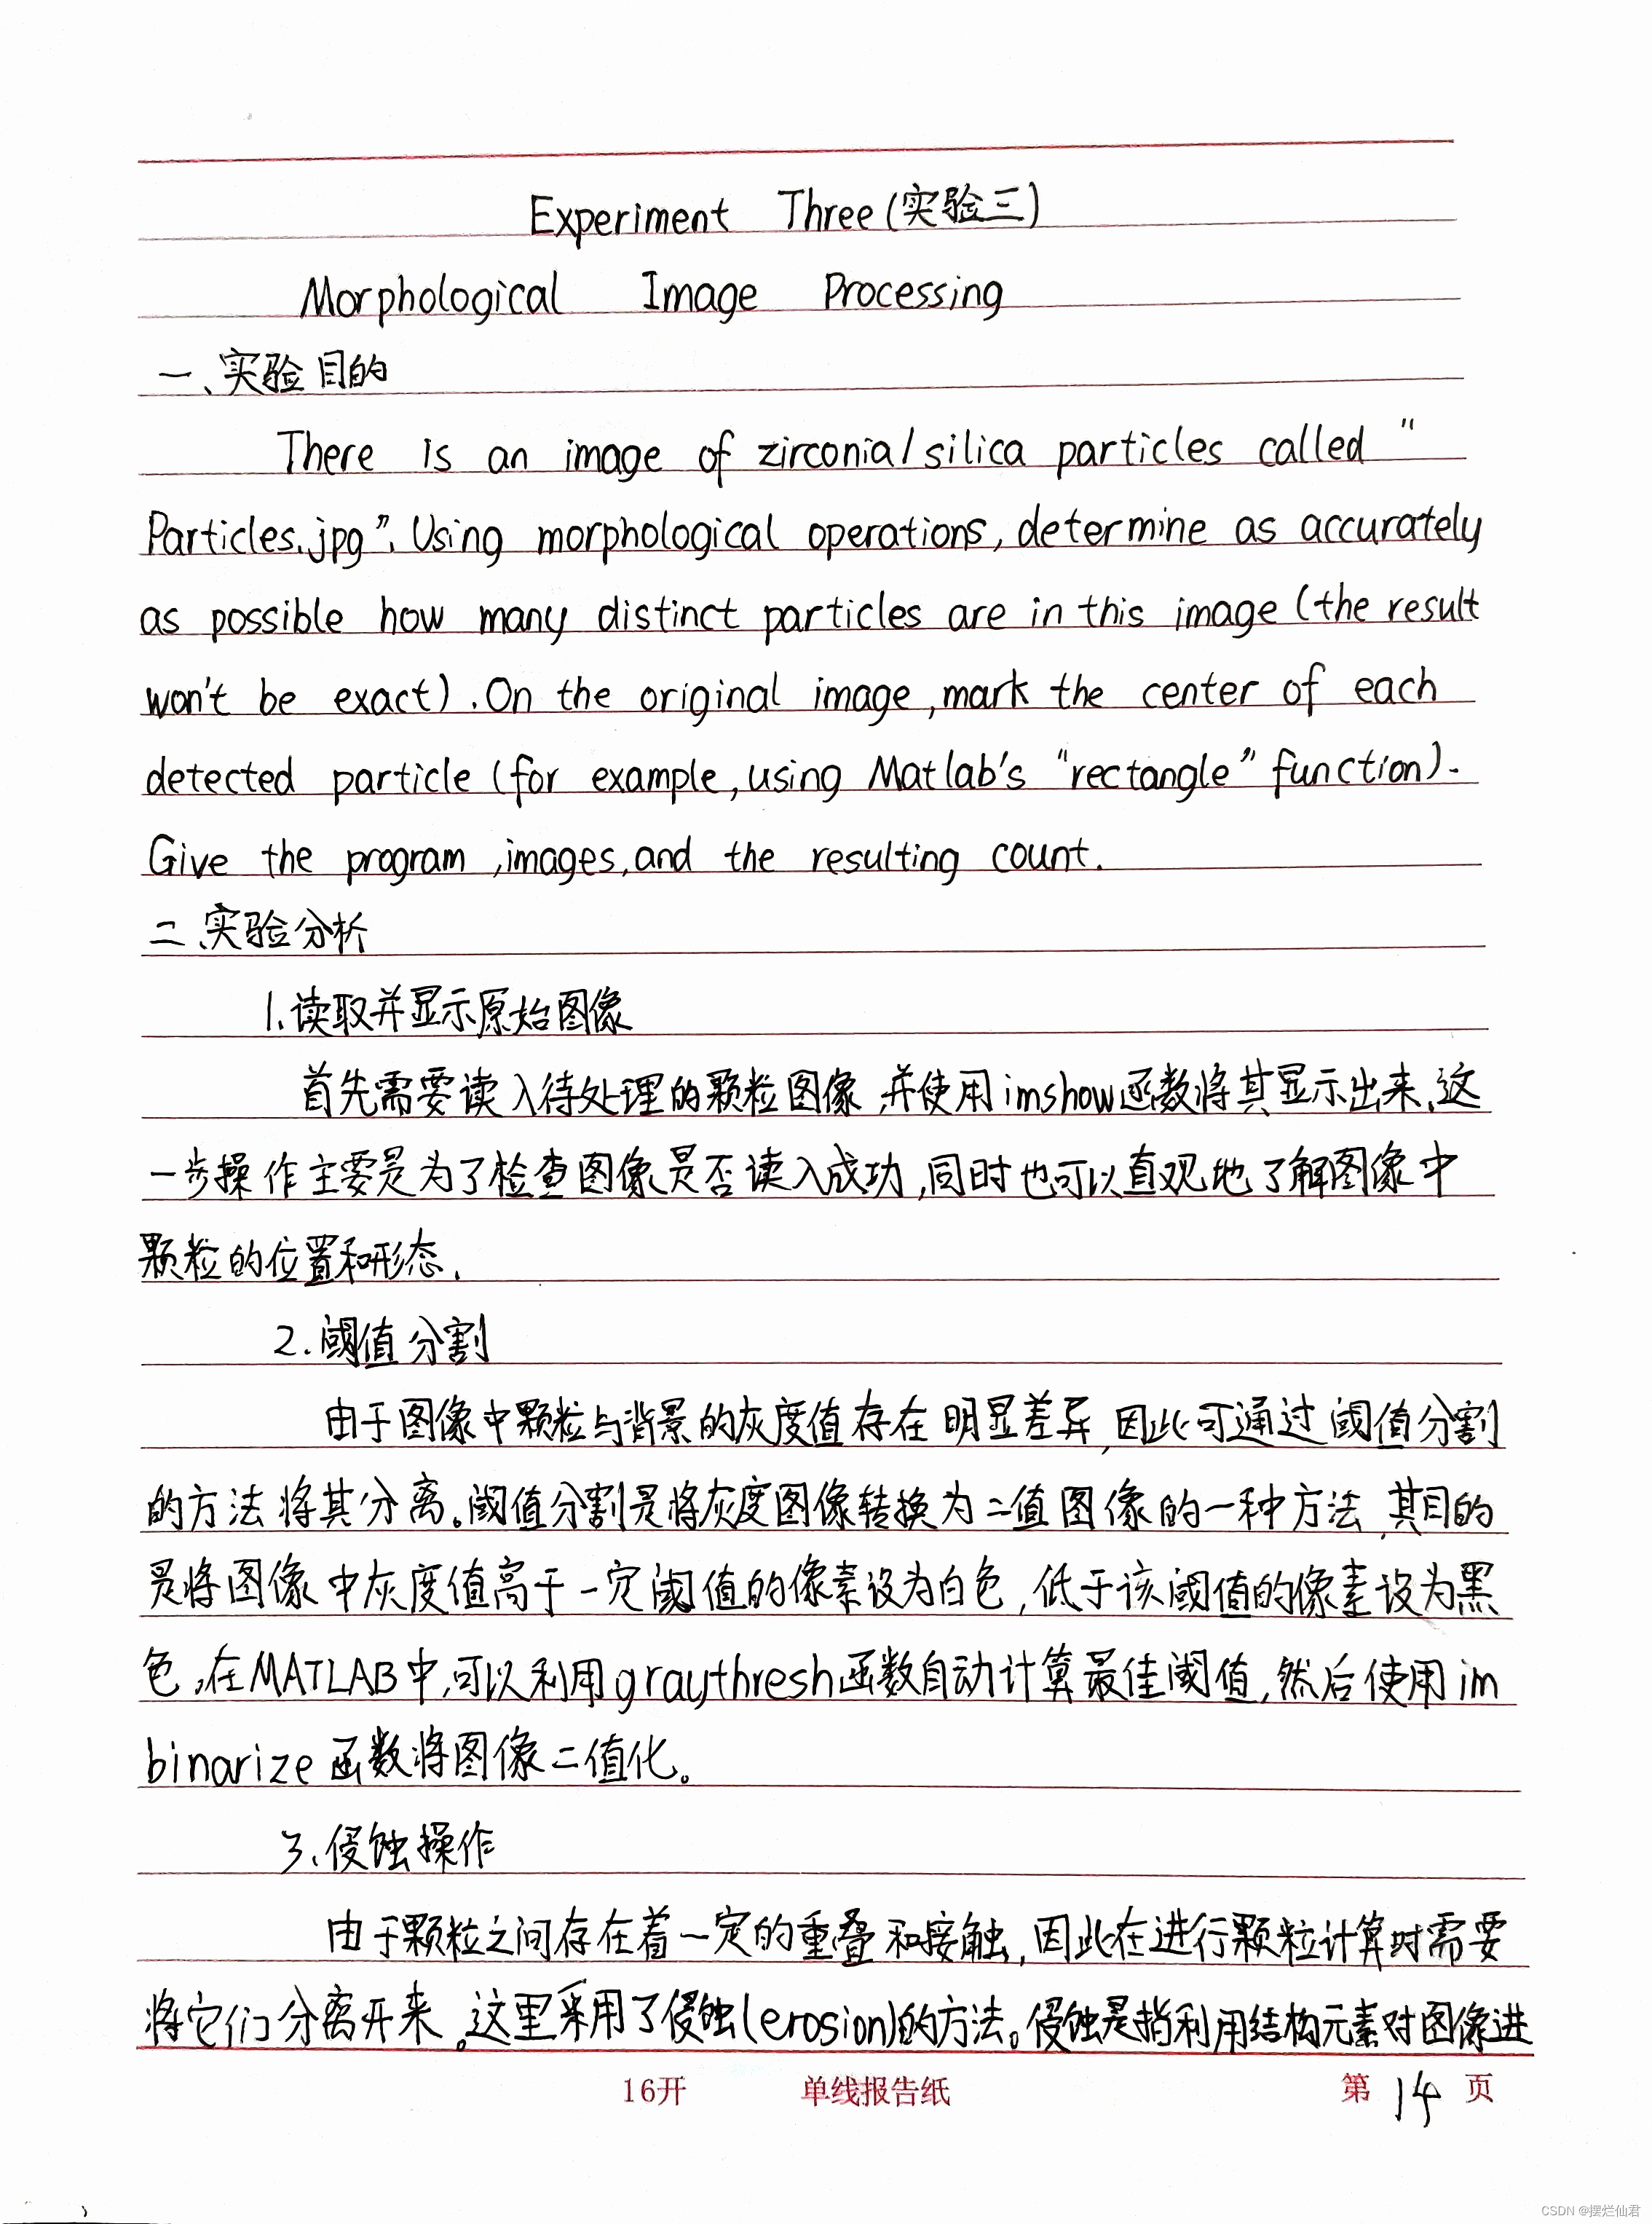 Experiment Three(实验三)
Morphological Image Processing
一、实验目的
There is an image of zirconia/silica particles called "
Particles.jpg". Using morphological operations, determine as accurately
as possible how many distinct particles are in this image (the result
won't be exact). On the original image, mark the center of each
detected particle (for example, using Matlab's "rectangle" function).
Give the program, images, and the resulting count.
二、实验分析
1.读取并显示原始图像
首先需要读入待处理的颗粒图像,并使用imshow函数将其显示出来,这
一步操作主要是为了检查图像是否读入成功,同时也可以直观地了解图像中
颗粒的位置和形态.
2.阈值分割
由于图像中颗粒与背景的灰度值存在明显差异,因此可通过阈值分割
的方法将其分离。阈值分割是将灰度图像转换为二值图像的一种方法,其目的
是将图像中灰度值高于一定阈值的像素设为白色,低于该阈值的像素设为黑
色,在MATLAB中,可以利用graythresh函数自动计算最佳阈值,然后使用im
binarize函数将图像二值化。
3、侵蚀操作
由于颗粒之间存在着一定的重叠和接触,因此在进行颗粒计算时需要
将它们分离开来。这里采用了侵蚀(erosion)的方法。侵蚀是指利用结构元素对图像进
16开 单线报告纸 第 14 页
CSDN @摆烂仙君